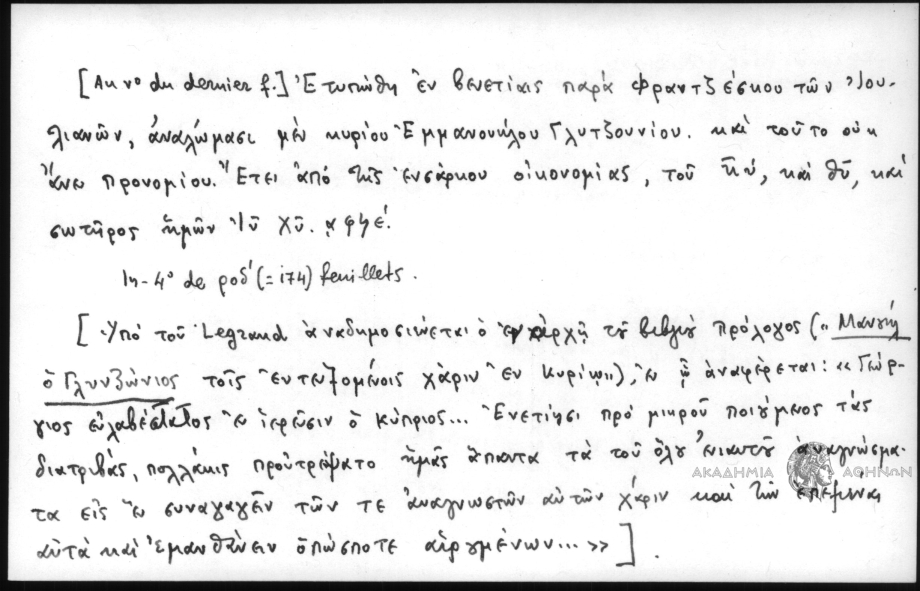 [Au v° du dernier f.] Ἐτυπώθη ἐν Βενετίαις παρὰ Φραντζέσκου τῶν Ἰου-
λιανῶν, ἀναλώμασι μὲν κυρίου Ἐμμανουήλου Γλυτζουνίου. καὶ τοῦτο οὐκ
ἄνευ προνομίου. Ἔτει ἀπὸ τῆς ἐνσάρκου οἰκονομίας, τοῦ κ̅υ̅, καὶ θ̅υ̅, καὶ
σωτῆρος ἡμῶν Ἰ̅υ̅ Χ̅υ̅. αφϟε΄.
In-4° de ροδ΄ (= 174) feuillets.
[Ὑπὸ τοῦ Legrand ἀναδημοσιεύεται ὁ ἐν ἀρχῇ τοῦ βιβλίου πρόλογος („Μανουὴλ
ὁ Γλυνζώνιος τοῖς ἐντευξομένοις χάριν ἐν Κυρίῳ"), ἐν ᾧ ἀναφέρεται: «Γεώρ-
γιος εὐλαβέστατος ἐν ἱερεῦσιν ὁ κύπριος... Ἐνετίησι πρὸ μικροῦ ποιούμενος τὰς
διατριβάς, πολλάκις προὐτρέψατο ἡμᾶς ἅπαντα τὰ τοῦ ὅλου ἐνιαυτοῦ ἀναγνώσμα-
τα εἰς ἓν συναγαγεῖν τῶν τε ἀναγνωστῶν αὐτῶν χάριν καὶ τῶν
αὐτὰ καὶ ἐκμανθάνειν ὁπώσποτε αἱρουμένων...»].
ΑΚΑΔΗΜΙΑ ΑΘΗΝΩΝ